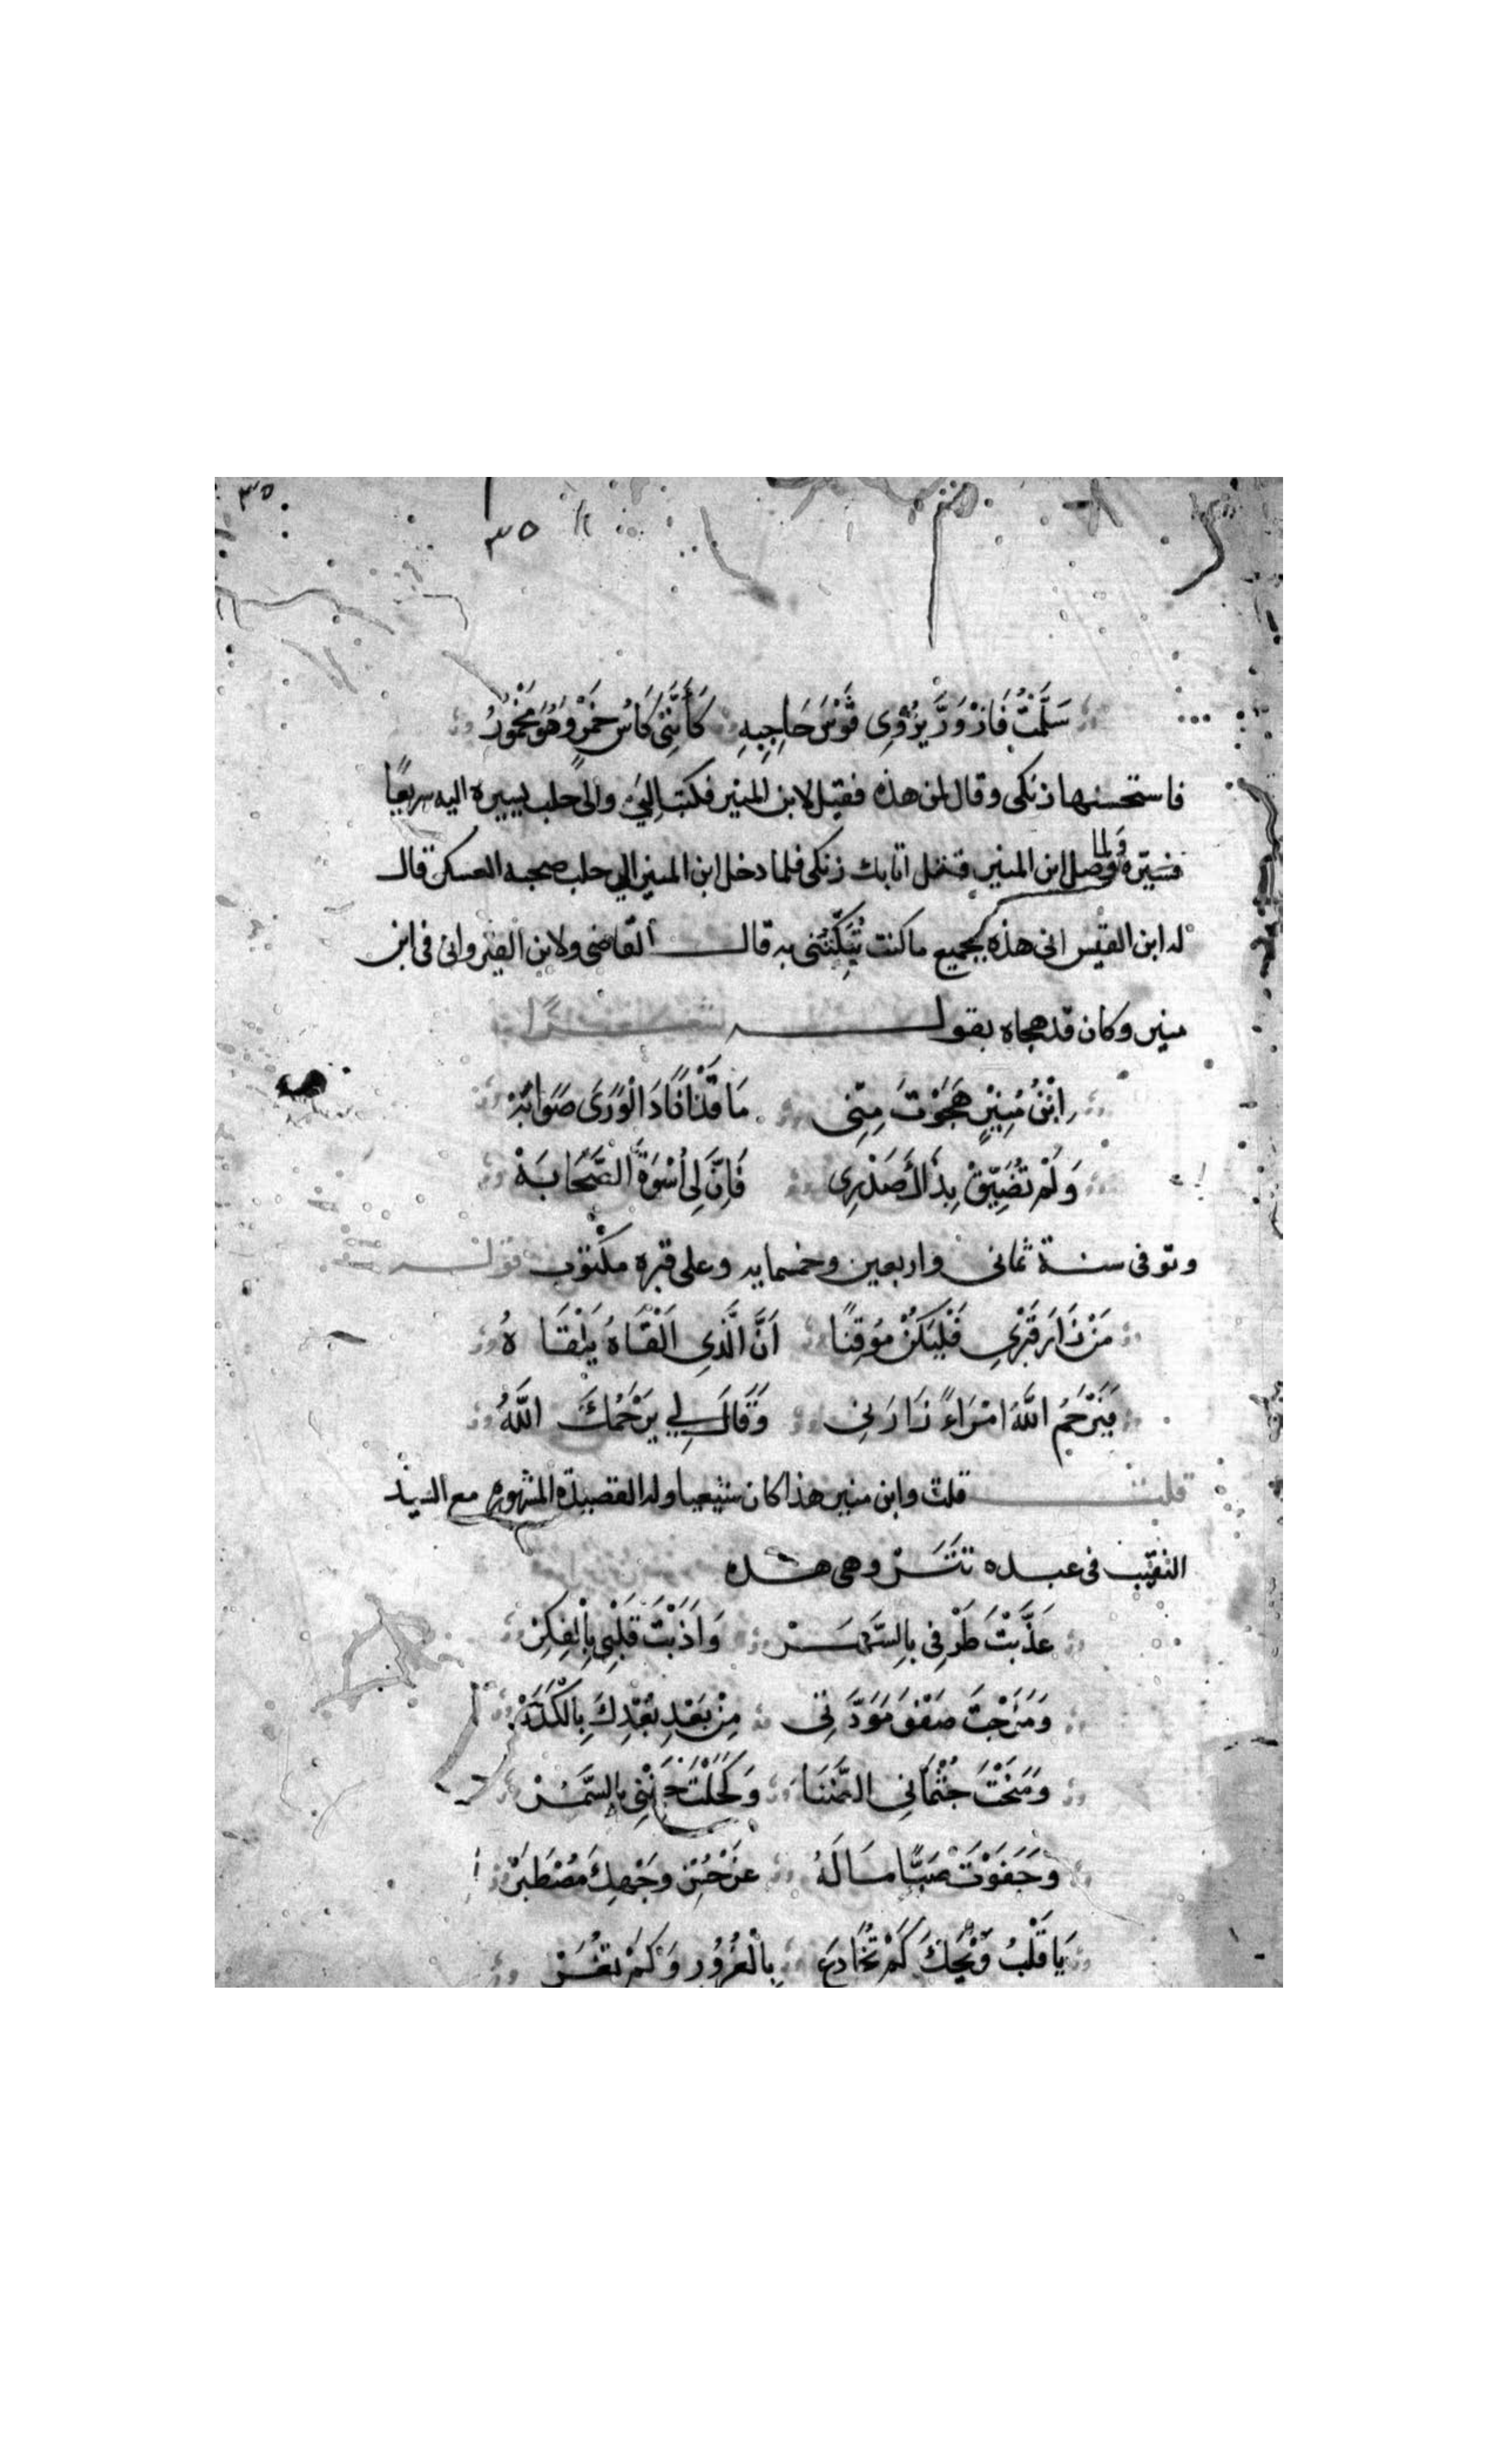 ٣٥
٣٥
سَلَّمْتُ فَازْوَرَّ يَزْوِى قَوْسَ حَاجِبِهِ كَأَنَّنِى كَاسُ خَمْرٍ وَهُوَ مَخْمُورُ
فاستحسنها زنكى وقال لمن هذه فقيل لابن المنير فكتب إلى والى حلب يسيره اليه سريعًا
فسيّره ولما وصل ابن المنير قتل اتابك زنكى فلما دخل ابن المنير الى حلب صحبه العسكر قال
له ابن القيسرانى هذه بجميع ما كنت تُبَكِّتُنى به قال القاضى ولابن القيسرانى فى ابن
منير وكان قد هجاه بقوله
اِبْنُ مُنِيْرٍ هَجَوْتَ مِنِّى مَا قَدْ أَفَادَ الْوَرَى صَوَابُهْ
وَلَمْ تُضَيِّقْ بِذَاكَ صَدْرِى فَاِنَّ لِى أُسْوَةَ الصَّحَابَهْ
وتوفى سنة ثمانى واربعين وخمسمايه وعلى قبره مكتوب
مَنْ زَارَ قَبْرِى فَلْيَكُنْ مُوقِنًا اَنَّ الَّذِى اَلْقَاهُ يَلْقَاهُ
فَيَرْحَمُ اللهُ امْرَاءً زَارَنِى وَقَالَ لِي يَرْحَمُكَ اللهُ
قلت قلت وابن منير هذا كان شيعيا وله القصيدة المشهوره مع السيد
النقيب فى عبده تتر وهى هذه
عَذَّبْتَ طَرْفِى بِالسَّهَرْ وَاَذَبْتَ قَلْبِى بِالْفِكَرْ
وَمَزَجْتَ صَفْوَ مَوَدَّتِى مِنْ بَعْدِ بُعْدِكَ بِالْكَدَرْ
وَمَنَحْتَ جُثْمَانِى الضَّنَا وَكَحَلْتَ جَفْنِى بِالسَّهَرْ
وَجَفَوْتَ صَبًّا مَا لَهُ عَنْ حُسْنِ وَجْهِكَ مُصْطَبَرْ
يَا قَلْبُ وَيْحَكَ كَمْ تُخَادِعُ بِالْغُرُورِ وَكَمْ تُغَرْ